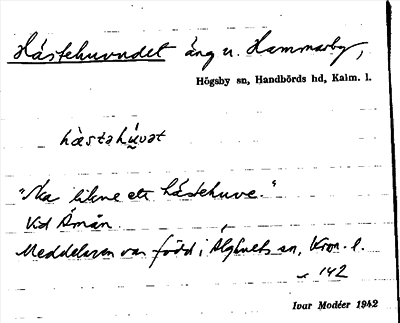 Hästehuvudet äng u. Hammarby,
Högsby sn, Handbörds hd, Kalm. l.
hästahúvət
"Ska likne ett hästehuve."
Vid Åmån.
Meddelaren var född i Älghults sn, Kron. l.
142
Ivar Modéer 1942